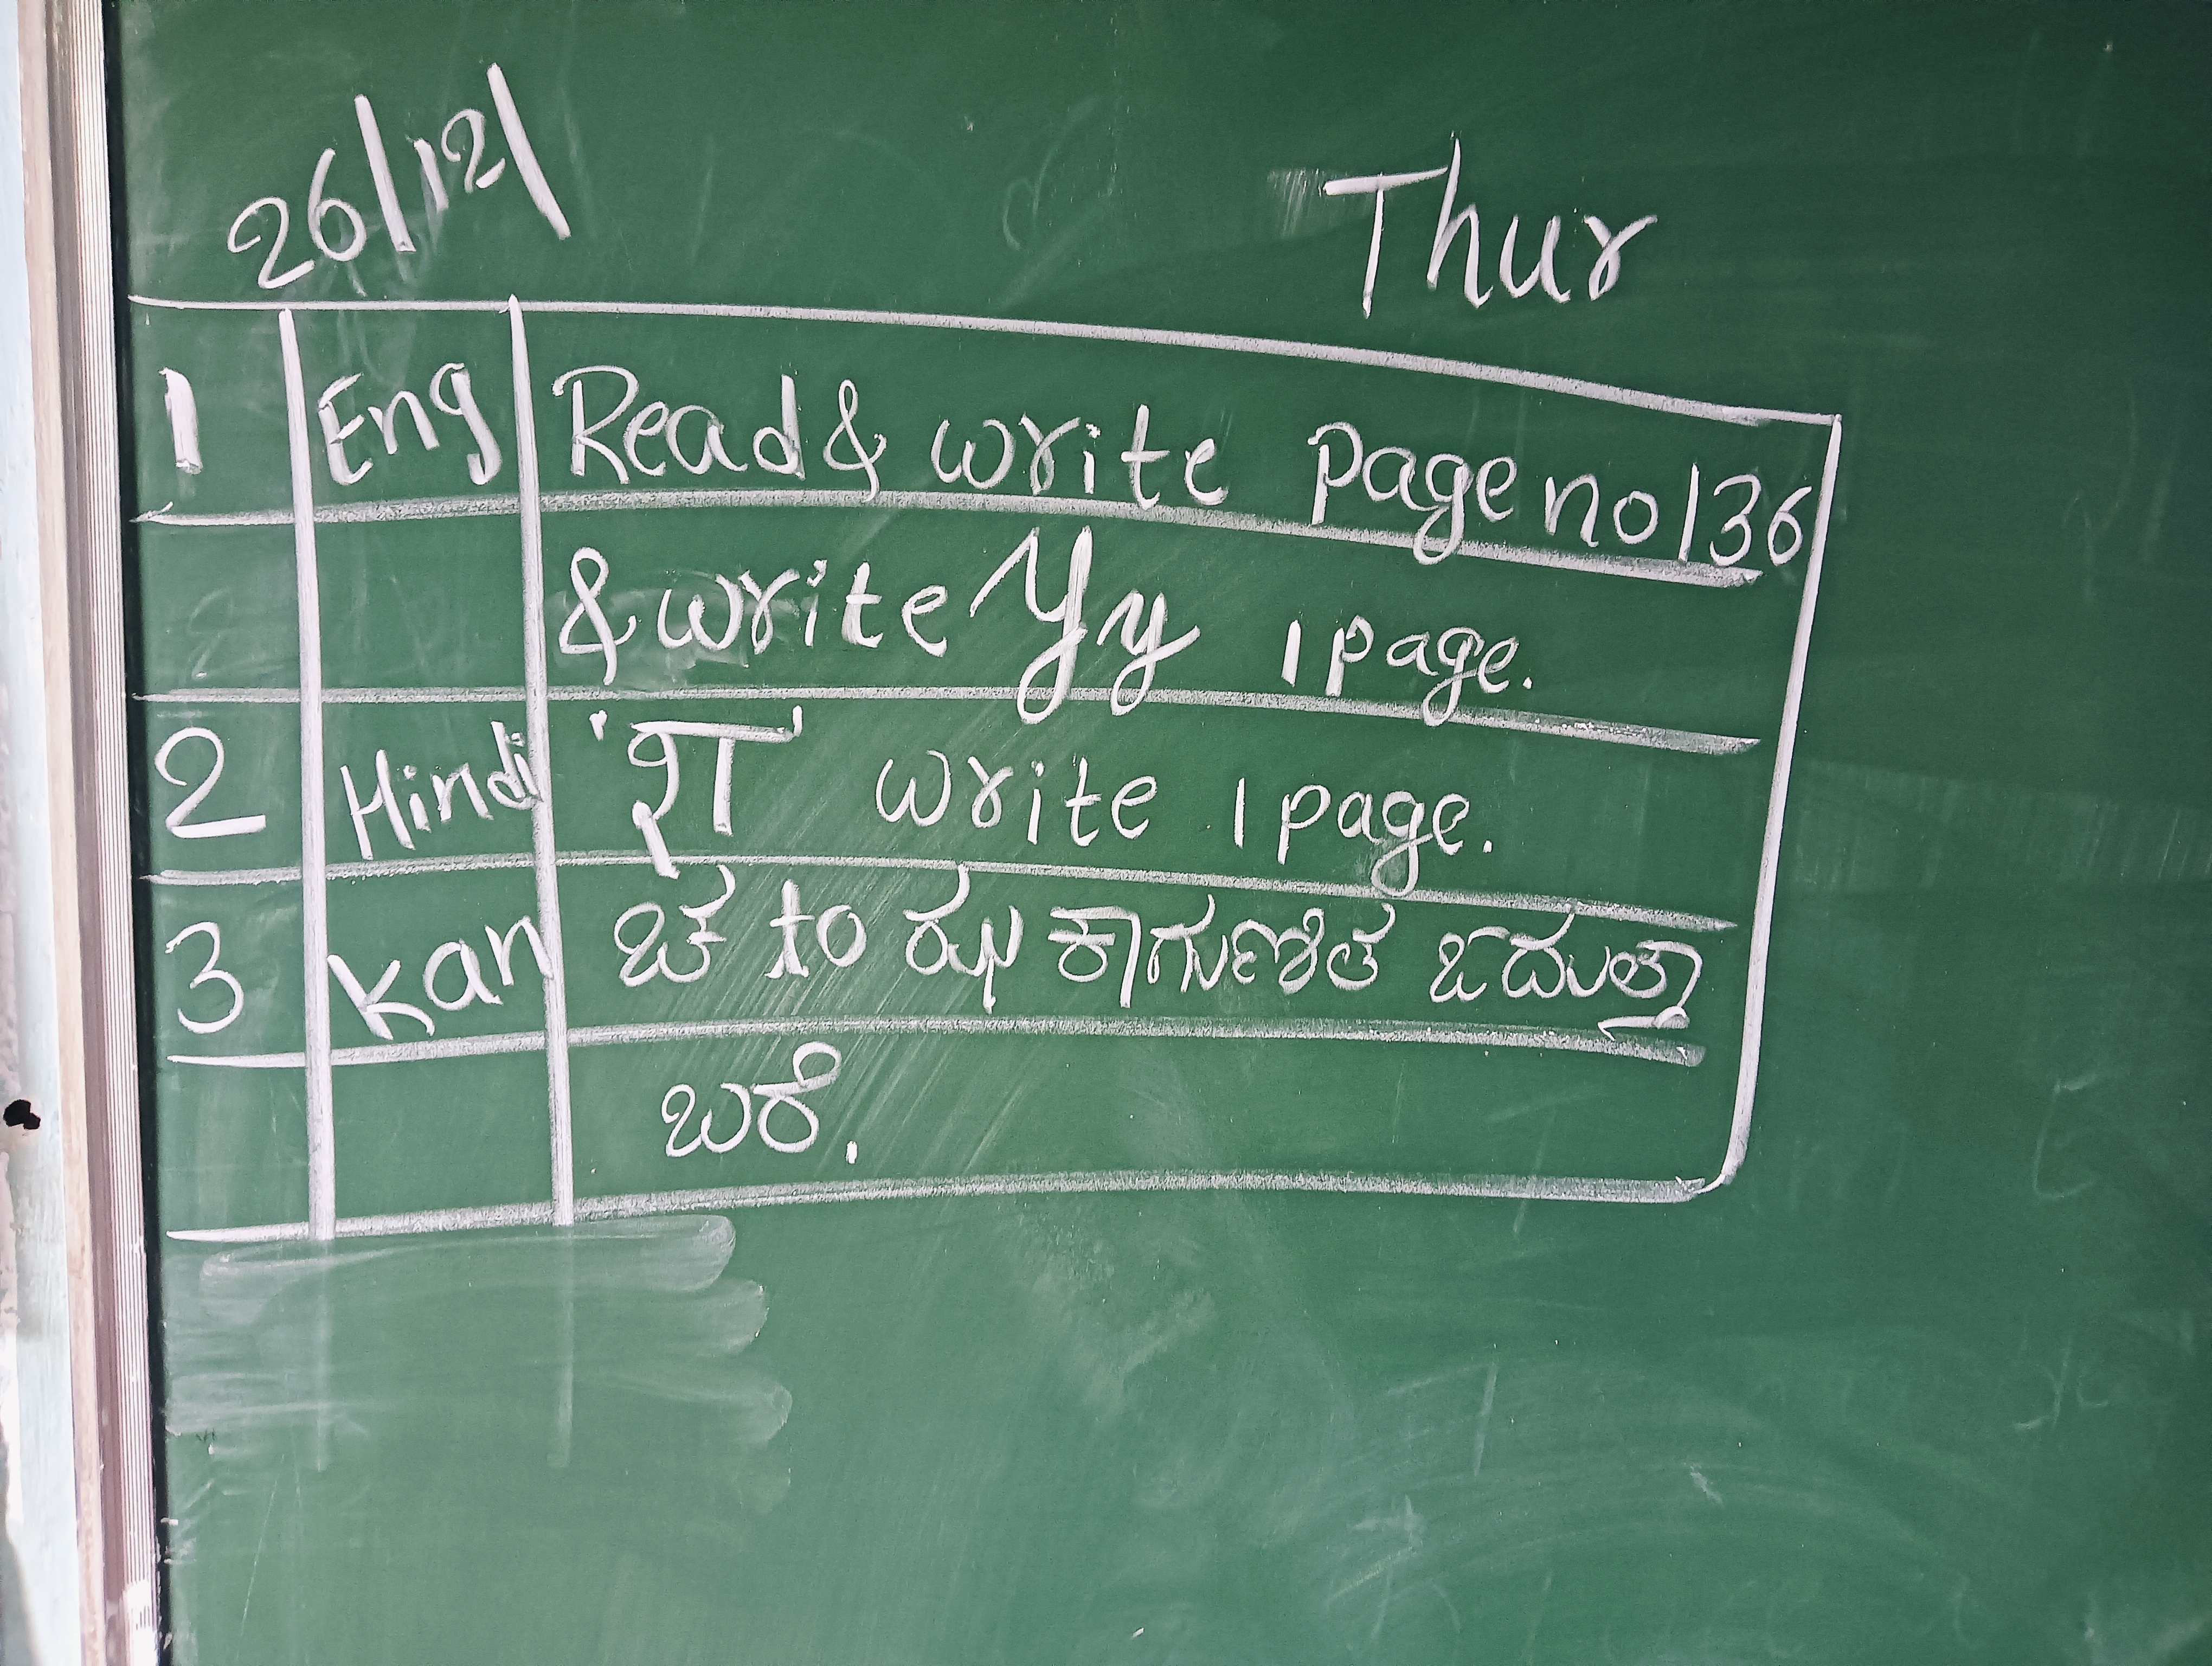 26/12/
Thur
1 Eng Read & write page no 136
& write Yy 1 page.
2 Hindi 'श' write 1 page.
3 kan ಚ to ಝ ಕಾಗುಣಿತ ಓದುತ್ತಾ
ಬರೆ.